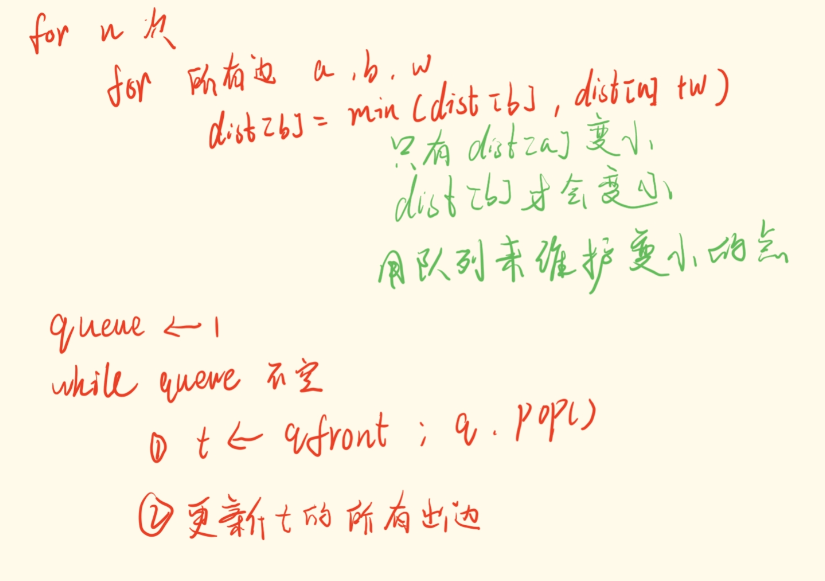 for n 次
for 所有边 a.b.w
dist[b] = min(dist[b], dist[a] + w)
只有 dist[a] 变小
dist[b] 才会变小
用队列来维护变小的点
queue ← 1
while queue 不空
① t ← qfront ; q.pop()
② 更新 t 的所有出边